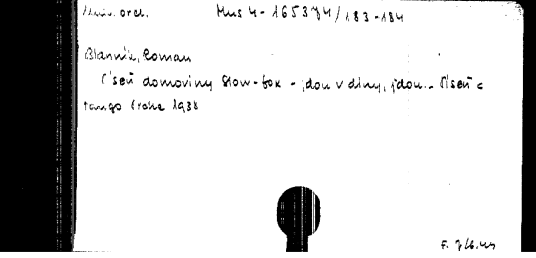 orch. Mus 4-165374/183-184
Blanník, Roman
Píseň domoviny Slow-fox - jdou v diny, jdou.. Píseň a
tango Praha 1938
F. 7/6.44